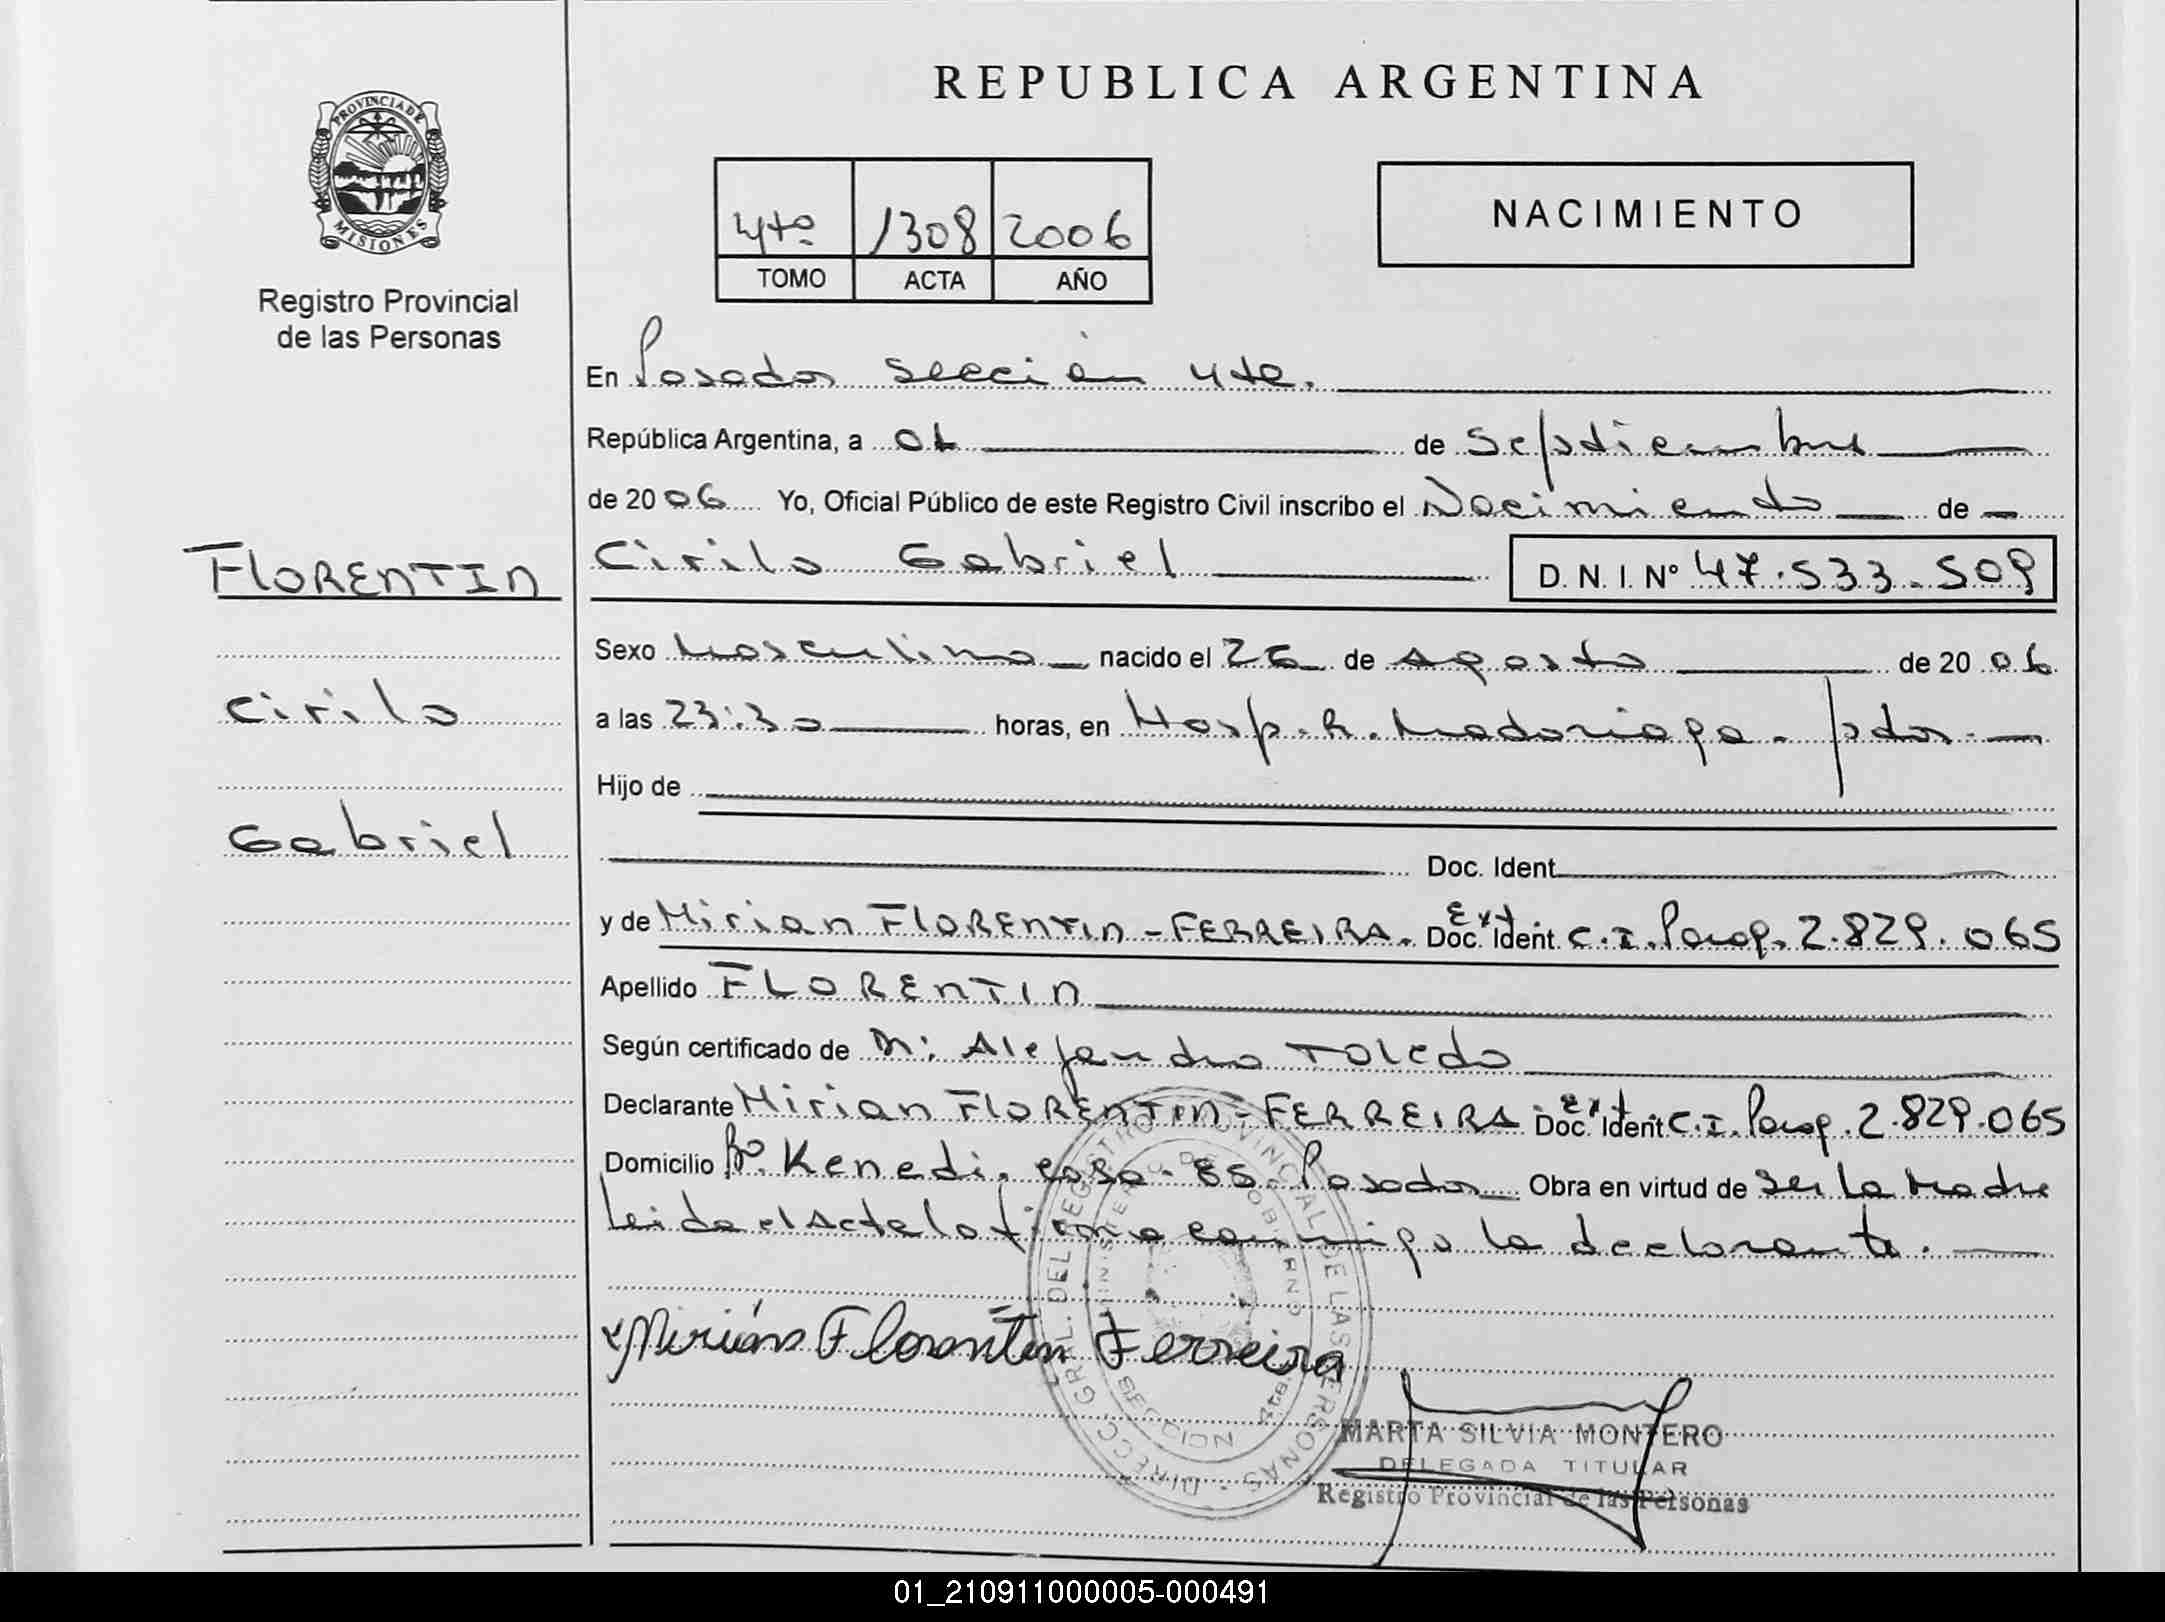 REPUBLICA ARGENTINA
PROVINCIA DE MISIONES
Registro Provincial
de las Personas
4to 1308 2006
TOMO ACTA AÑO
NACIMIENTO
En Posadas sección 4ta.
República Argentina, a 01 de Septiembre
de 2006 Yo, Oficial Público de este Registro Civil inscribo el Nacimiento de
FLORENTIN
Cirilo Gabriel D. N. I. Nº 47.533.509
Sexo Masculino nacido el 26 de Agosto de 2006
Cirilo
a las 23:30 horas, en Hosp. R. Madariaga. pdas.
Hijo de
Gabriel
Doc. Ident.
y de Mirian FLORENTIN-FERREIRA. Ext Doc. Ident C.I. Parag. 2.829.065
Apellido FLORENTIN
Según certificado de Dr: Alejandro TOLEDO
Declarante Mirian FLORENTIN-FERREIRA Ext Doc. Ident C.I. Parag. 2.829.065
Domicilio Bº. Kenedi. casa-85. Posadas Obra en virtud de ser la Madre
Leida el Acta la firma conmigo la declarante.
Mirián Florentin Ferreira
DIRECC. GRAL. DEL REGISTRO PROVINCIAL DE LAS PERSONAS
MINISTERIO DE GOBIERNO
MARTA SILVIA MONTERO
DELEGADA TITULAR
Registro Provincial de las Personas
01_210911000005-000491